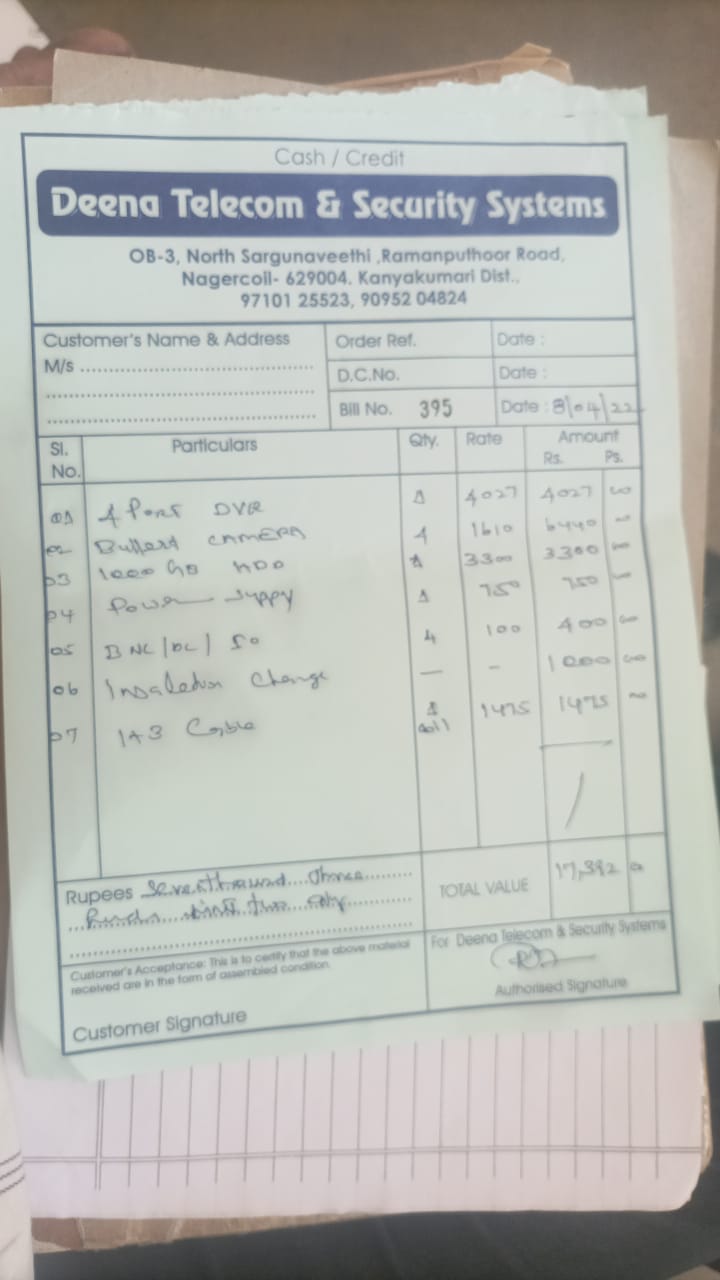 Cash / Credit
Deena Telecom & Security Systems
OB-3, North Sargunaveethi ,Ramanputhoor Road,
Nagercoil- 629004. Kanyakumari Dist.,
97101 25523, 90952 04824
Customer's Name & Address
M/s
Order Ref.
Date :
D.C.No.
Date :
Bill No. 395
Date : 8/04/22
Sl. No.
Particulars
Qty.
Rate
Amount
Rs. Ps.
01 4 Port DVR 1 4027 4027 00
02 CAMERA 4 1610 6440
03 1000 GB HDD 1 3300 3300 00
04 Power 1 750 750
05 BNC/DC/ 4 100 400 00
06 — - 1000 00
07 1+3 Cable 1 1475 1475
Rupees
TOTAL VALUE 17,392
Customer's Acceptance: This is to certify that the above material
received are in the form of assembled condition.
For Deena Telecom & Security Systems
Authorised Signature
Customer Signature